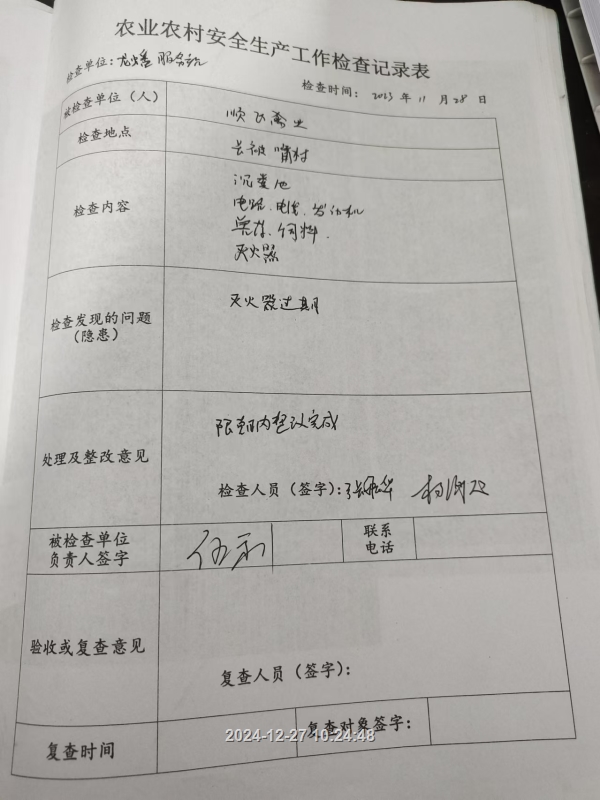 农业农村安全生产工作检查记录表
检查单位: 服务站
检查时间: 2023 年 11 月 28 日
被检查单位(人) 顺飞禽业
检查地点 长坡嘴村
检查内容
沉淀池
电路、电线、发动机
柴存、饲料.
灭火器
检查发现的问题
(隐患)
灭火器过期
处理及整改意见
限期内整改完成
检查人员(签字):
被检查单位
负责人签字
伍利
联系
电话
验收或复查意见
复查人员(签字):
复查时间
复查对象签字:
2024-12-27 10:24:48